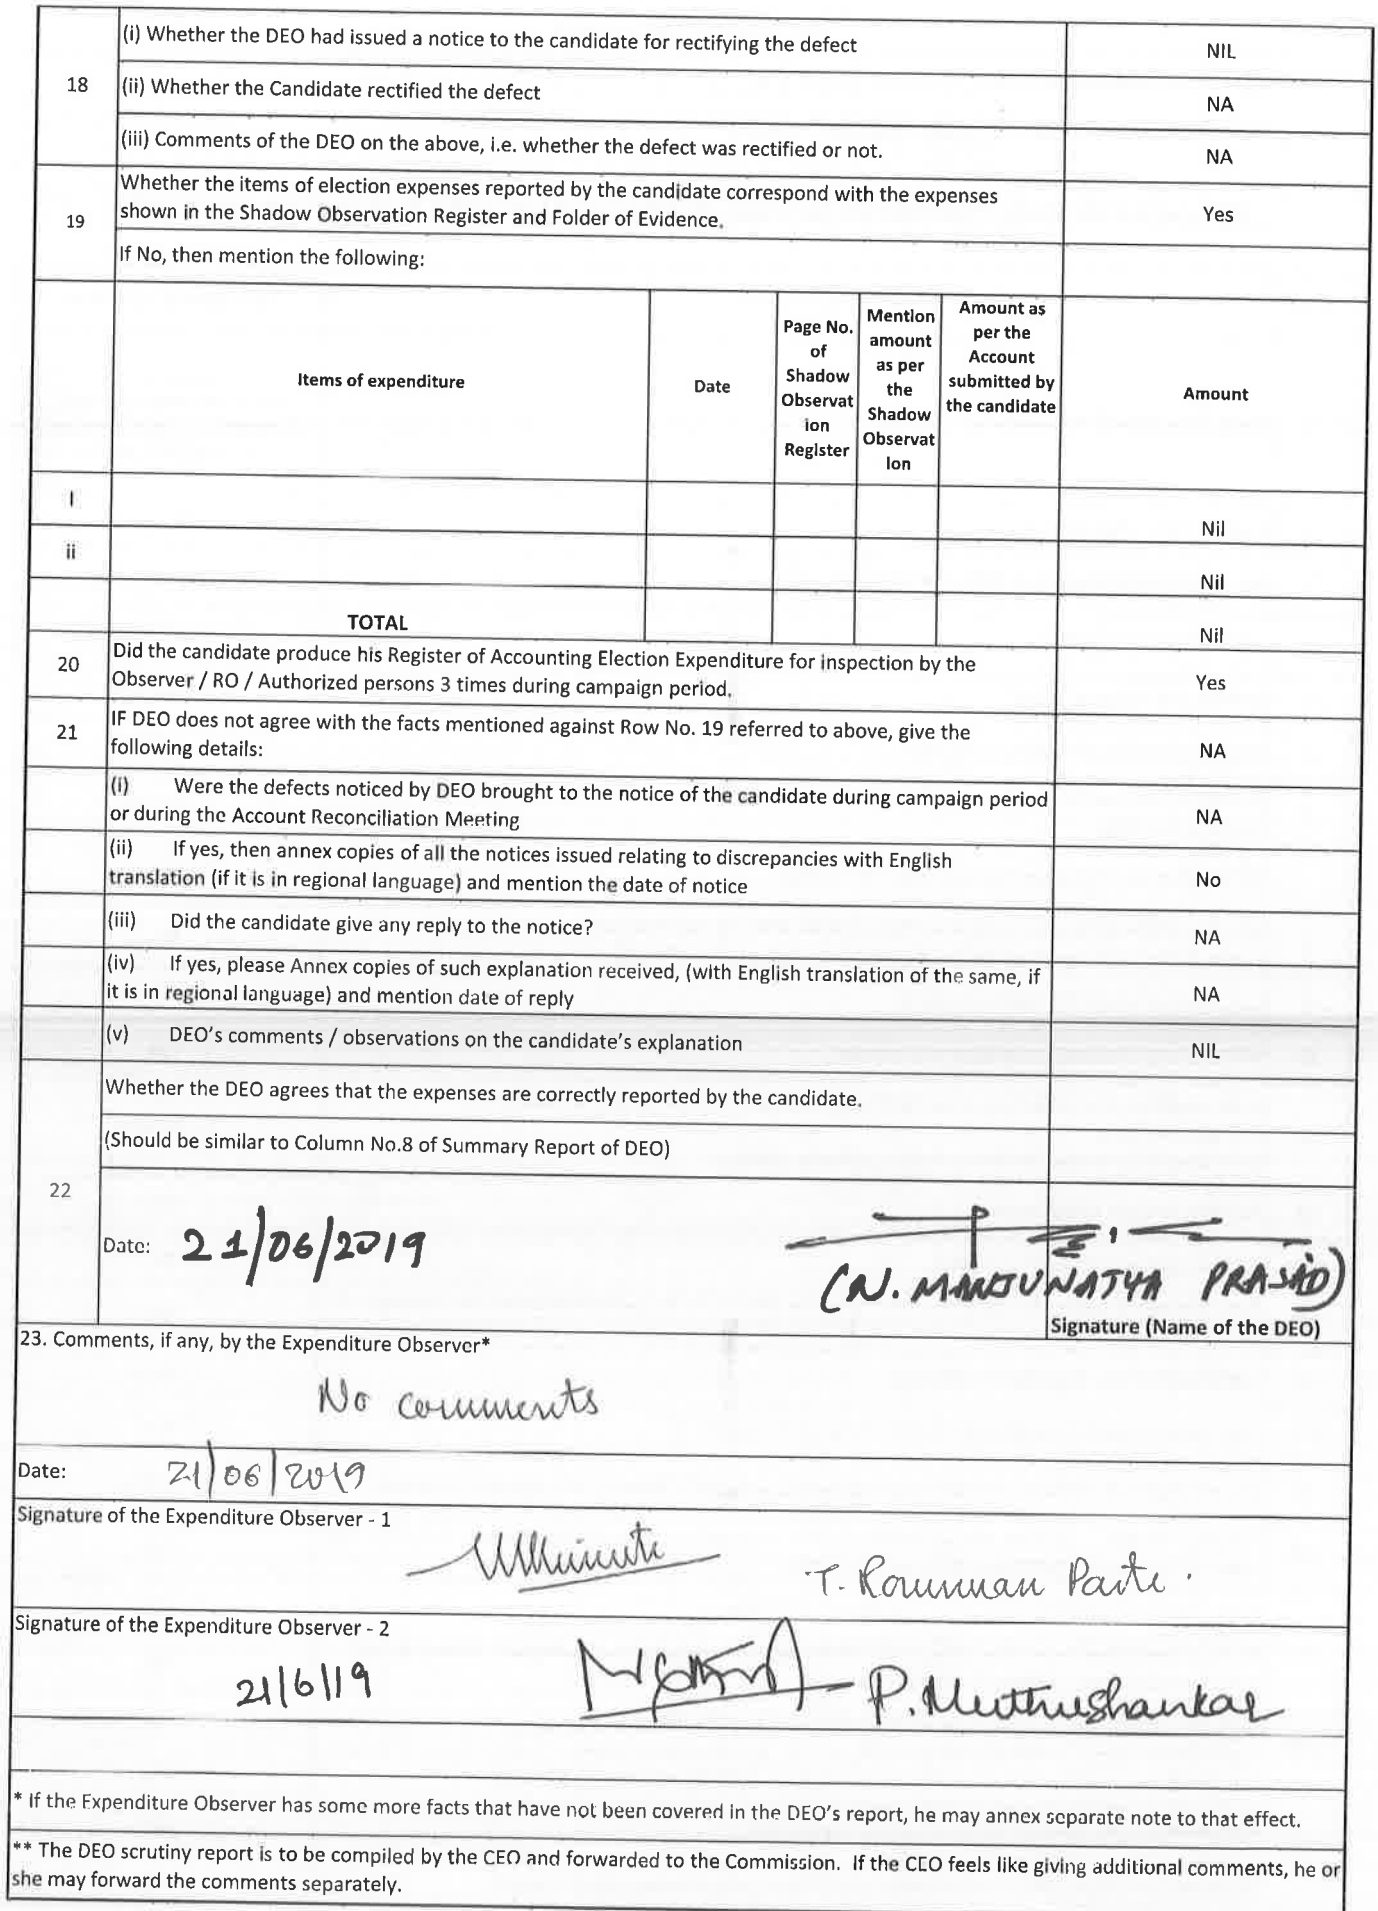 (i) Whether the DEO had issued a notice to the candidate for rectifying the defect
NIL
18
(ii) Whether the Candidate rectified the defect
NA
(iii) Comments of the DEO on the above, i.e. whether the defect was rectified or not.
NA
19
Whether the items of election expenses reported by the candidate correspond with the expenses
shown in the Shadow Observation Register and Folder of Evidence.
Yes
If No, then mention the following:
Items of expenditure
Date
Page No.
of
Shadow
Observat
ion
Register
Mention
amount
as per
the
Shadow
Observat
Ion
Amount as
per the
Account
submitted by
the candidate
Amount
I
Nil
ii
Nil
TOTAL
Nil
20
Did the candidate produce his Register of Accounting Election Expenditure for inspection by the
Observer / RO / Authorized persons 3 times during campaign period.
Yes
21
IF DEO does not agree with the facts mentioned against Row No. 19 referred to above, give the
following details:
NA
(i) Were the defects noticed by DEO brought to the notice of the candidate during campaign period
or during the Account Reconciliation Meeting
NA
(ii) If yes, then annex copies of all the notices issued relating to discrepancies with English
translation (if it is in regional language) and mention the date of notice
No
(iii) Did the candidate give any reply to the notice?
NA
(iv) If yes, please Annex copies of such explanation received, (with English translation of the same, if
it is in regional language) and mention date of reply
NA
(v) DEO's comments / observations on the candidate's explanation
NIL
22
Whether the DEO agrees that the expenses are correctly reported by the candidate.
(Should be similar to Column No.8 of Summary Report of DEO)
Date: 21/06/2019
(N. MANJUNATHA PRASAD)
Signature (Name of the DEO)
23. Comments, if any, by the Expenditure Observer*
No comments
Date: 21/06/2019
Signature of the Expenditure Observer - 1
T. Roumuan Paite.
Signature of the Expenditure Observer - 2
21/6/19
P. Muthushankar
* If the Expenditure Observer has some more facts that have not been covered in the DEO's report, he may annex separate note to that effect.
** The DEO scrutiny report is to be compiled by the CEO and forwarded to the Commission. If the CEO feels like giving additional comments, he or
she may forward the comments separately.